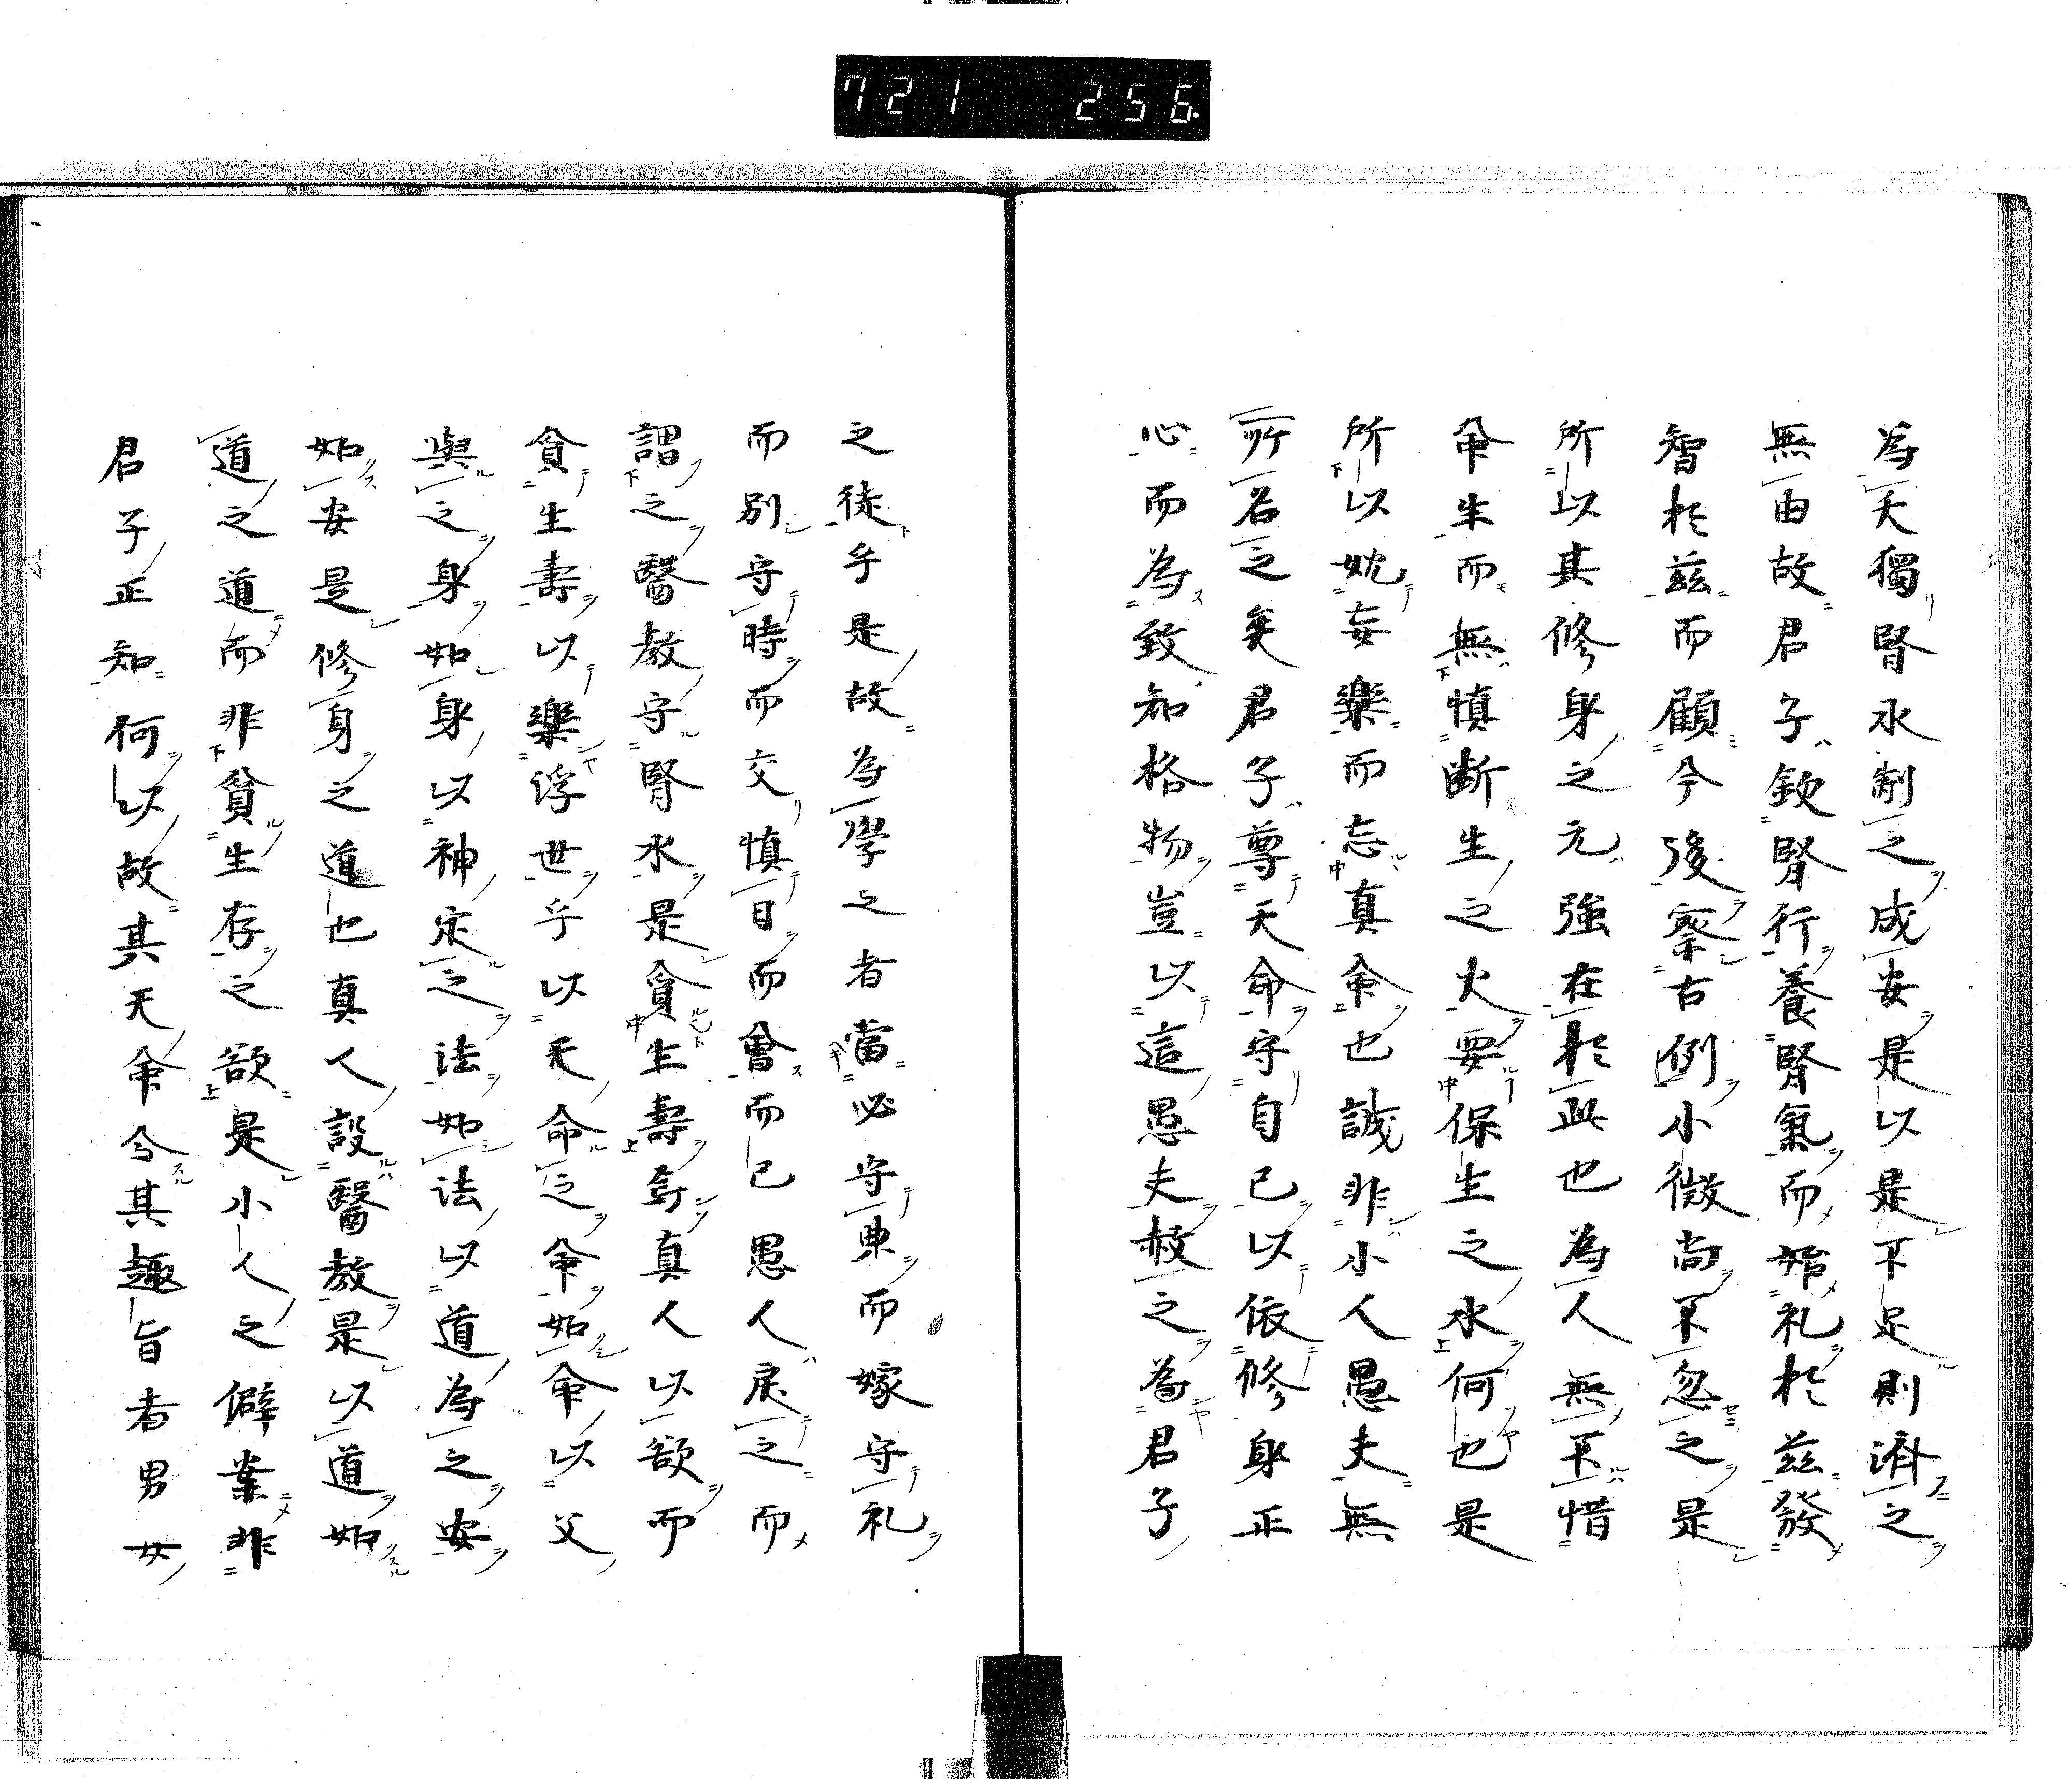 721 256
為夭獨腎水制之成安是以是不足則済之
無由故君子欽腎行養腎氣而始礼於茲發
智於茲而顧今後察古例小微尚不忽之是
所以其修身之元強在於此也為人無不惜
命生而無慎断生之火要保生之水何也是
所以妣妄樂而忘真命也誠非小人愚夫無
所名之矣君子尊天命守自己以依修身正
心而為致知格物豈以這愚夫赦之為君子
之徒乎是故為學之者當必守東而嫁守礼
而別守時而交慎日而會而已愚人戻之而
謂之醫教守腎水是貪生壽矣真人以欲而
貪生壽以樂浮世乎以天命之命如命以父
與之身如身以神定之法如法以道為之安
如安是修身之道也真人設醫教是以道如
道之道而非貪生存之欲是小人之僻案非
君子正知何以故其天命令其趣旨者男女